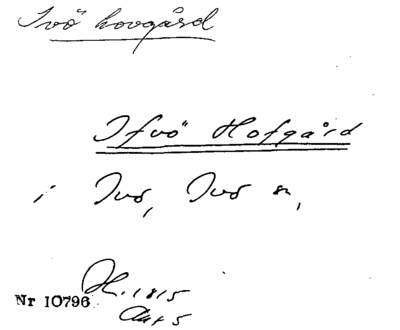 Ivö hovgård
Ifvö Hofgård
i Ivö, Ivö sn,
H. 1815
Akt 5
Nr 10796